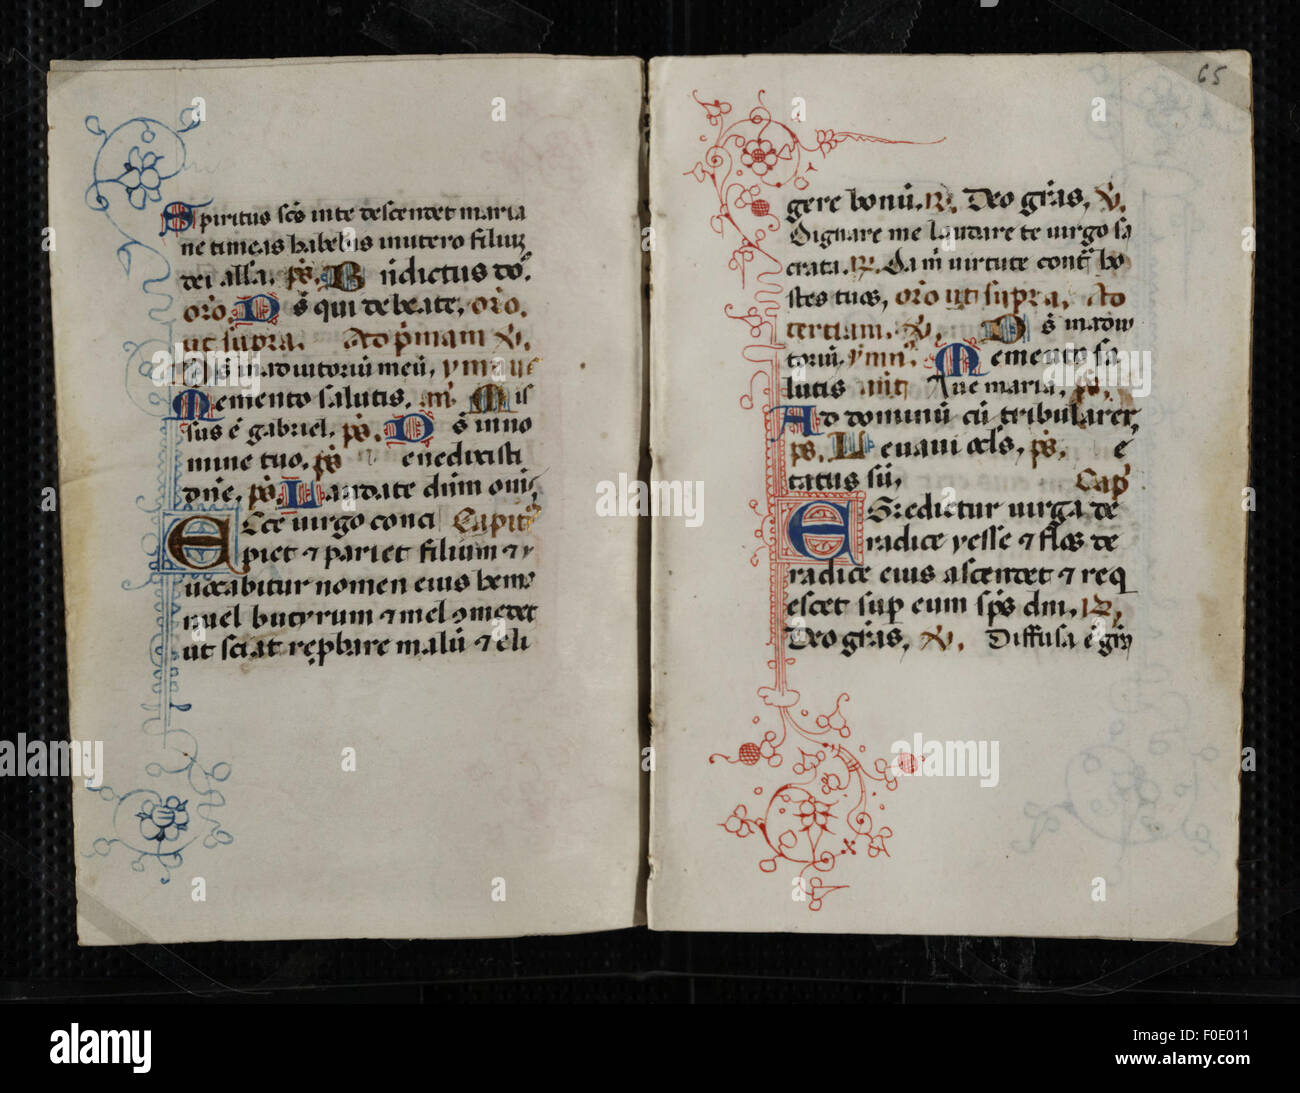 Spiritus scs inte descendet maria
ne timeas habebis inutero filium
dei alla. ps. Bndictus dō.
orō. Ds qui de beate, orō.
ut supra. Ad pmam ℣.
Ds inadiutoriū meū, ymnus
Memento salutis. an̄. Mis
sus ē gabriel. ps. Ds inno
mine tuo. ps enedixisti
dn̄e, ps. Laudate dūm oms,
Ecce virgo conci Capitm
piet ⁊ pariet filium ⁊ v
uocabitur nomen eius hema
nuel butyrum ⁊ mel comedet
ut sciat rep̱bare malū ⁊ eli
65
gere bonū. ℟. Deo grās, ℣.
Dignare me laudare te virgo sa
crata. ℟. Da m̄ virtute contr̄ ho
stes tuos, orō ut supra. Ad
tertiam. ℣. Ds inadiu
toriū. ymn̄. Memento sa
lutis ant Aue maria, ps.
Ad dominū cū tribularer,
ps. Leuaui ocls, ps. e
tatus sū, Cap
Egredietur virga de
radice yesse ⁊ flos de
radice eius ascendet ⁊ req
escet sup eum sp̄s dm̄. ℟,
Deo grās, ℣. Diffusa ē grā
alamy
Image ID: F0E011
www.alamy.com